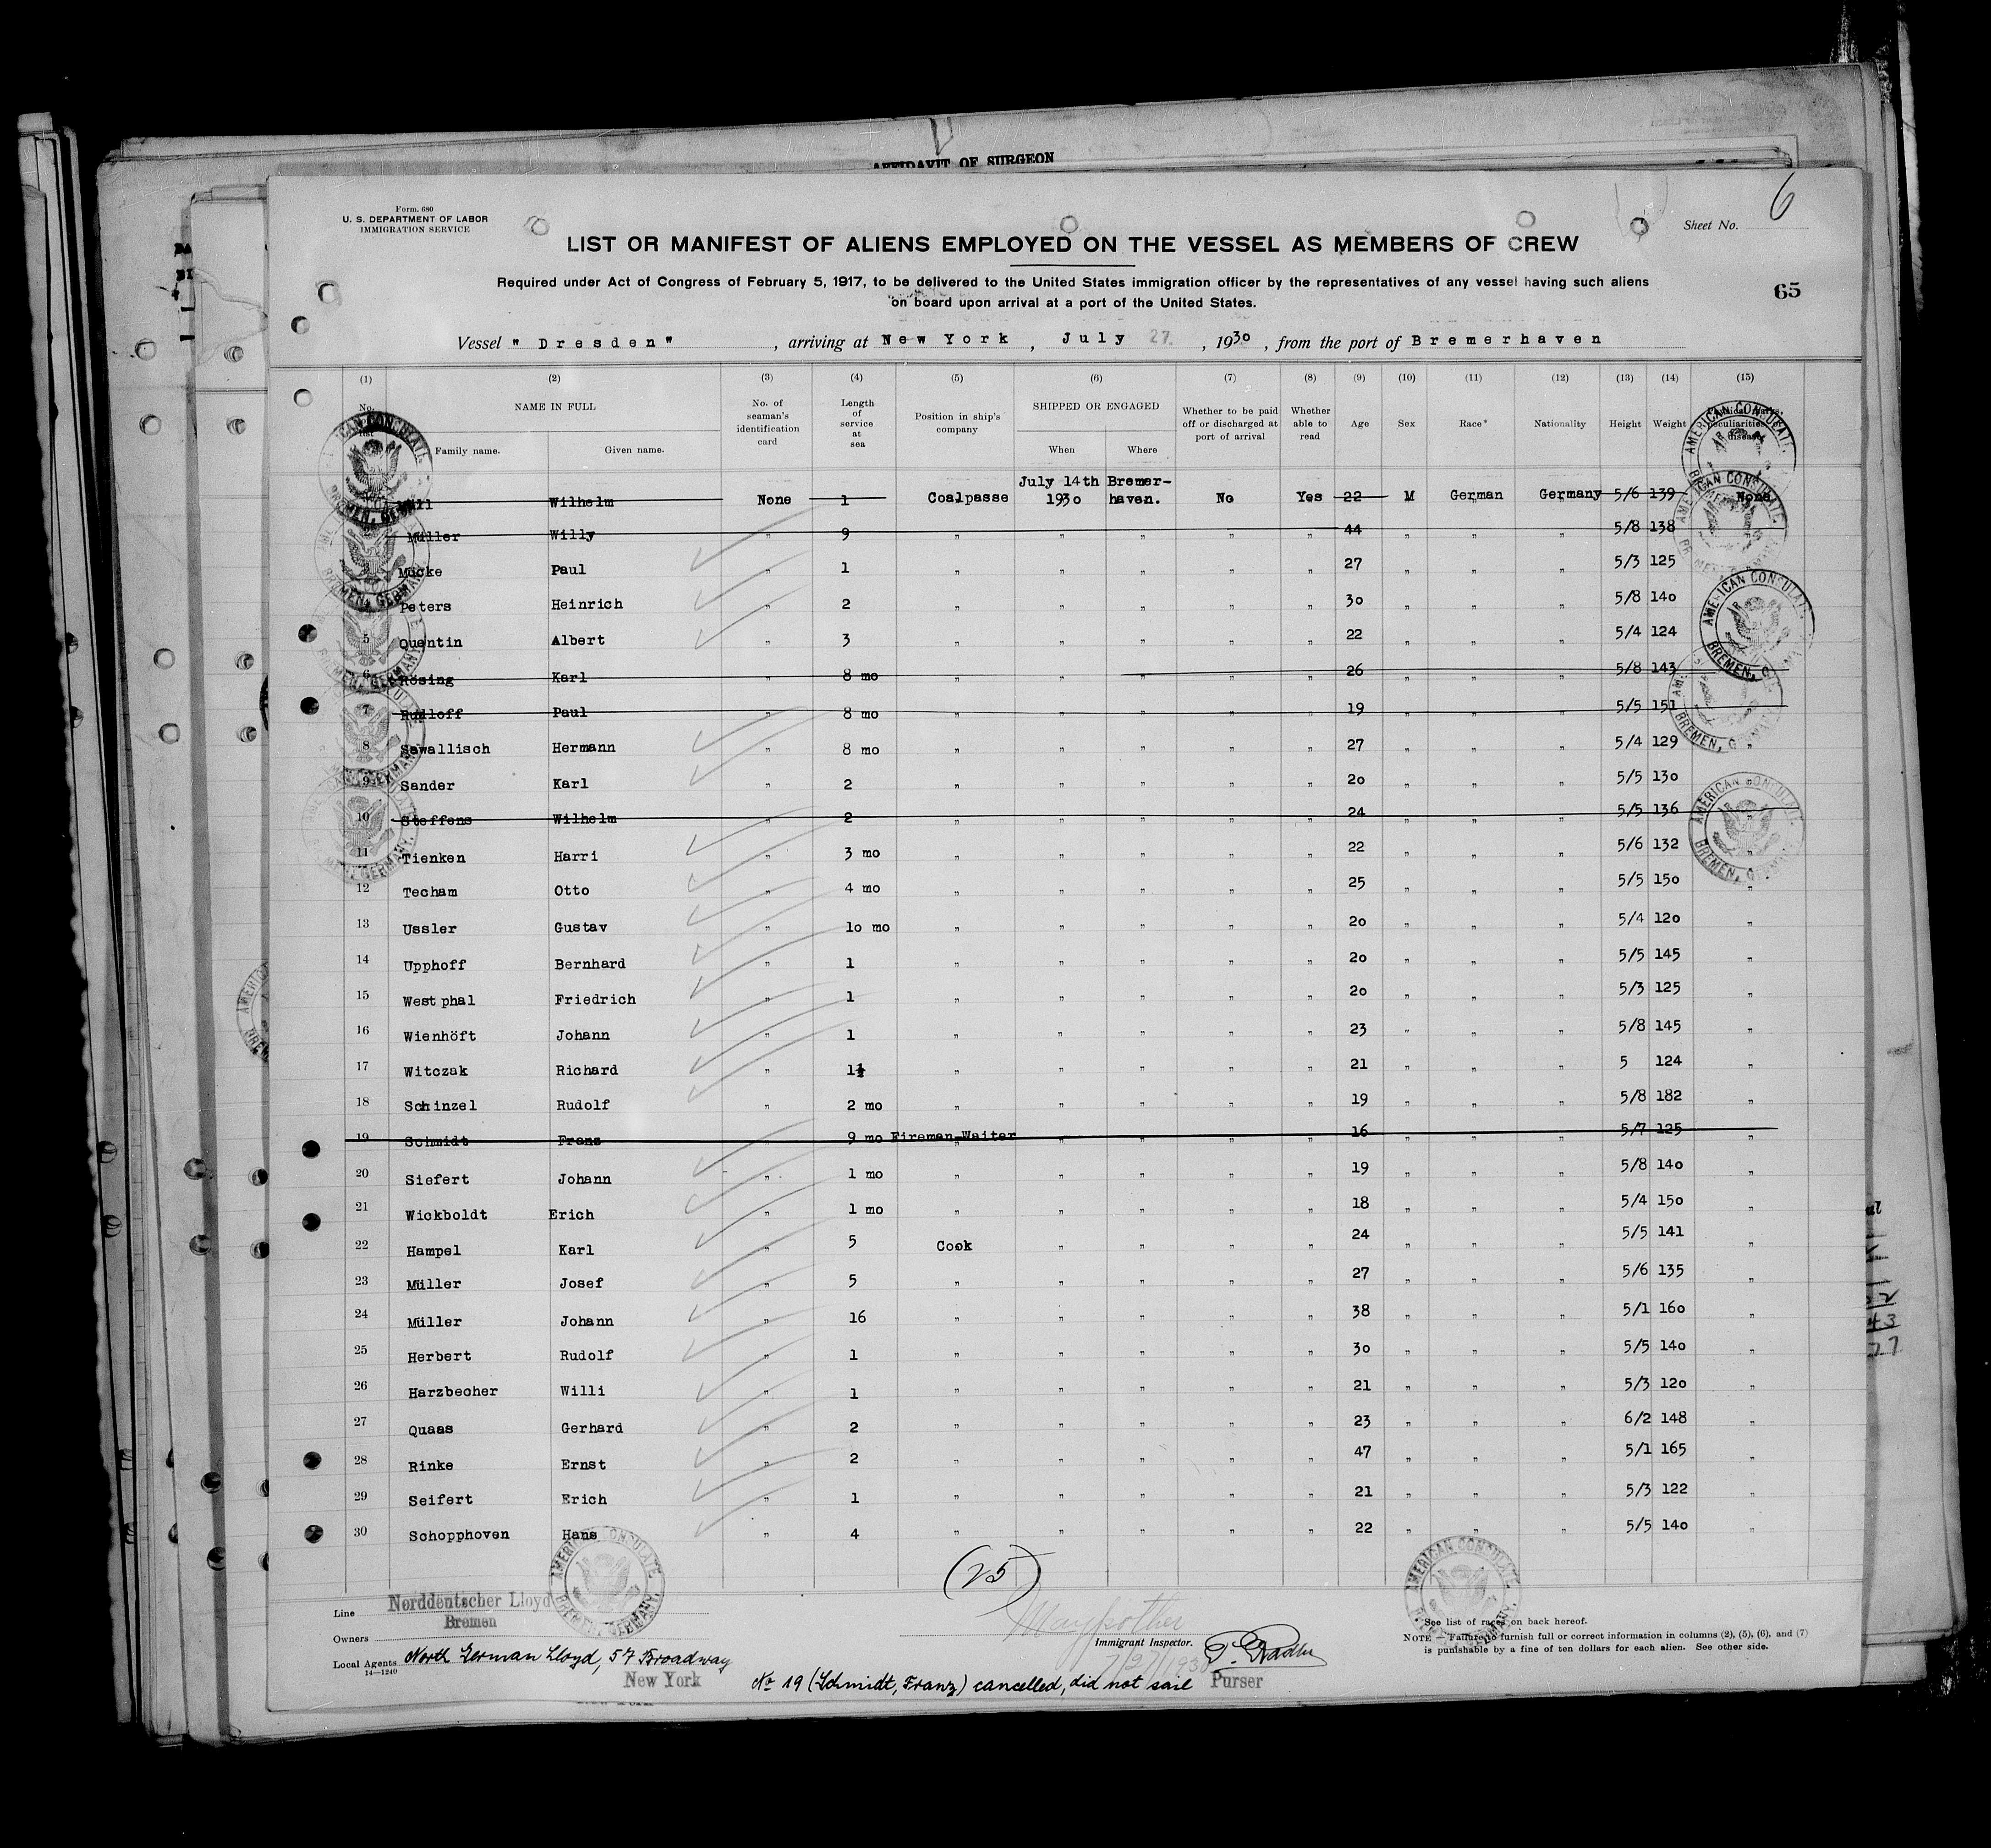 AFFIDAVIT OF SURGEON
Form. 680
U. S. DEPARTMENT OF LABOR
IMMIGRATION SERVICE
Sheet No. 6
LIST OR MANIFEST OF ALIENS EMPLOYED ON THE VESSEL AS MEMBERS OF CREW
Required under Act of Congress of February 5, 1917, to be delivered to the United States immigration officer by the representatives of any vessel having such aliens
on board upon arrival at a port of the United States.
65
Vessel " Dresden" , arriving at New York , July 27. , 1930 , from the port of Bremerhaven
(1) (2) (3) (4) (5) (6) (7) (8) (9) (10) (11) (12) (13) (14) (15)
No. list NAME IN FULL Family name. Given name. No. of seaman's identification card Length of service at sea Position in ship's company SHIPPED OR ENGAGED When Where Whether to be paid off or discharged at port of arrival Whether able to read Age Sex Race* Nationality Height Weight peculiarities disease
Wilhelm None 1 Coalpasse July 14th 1930 Bremer-haven. No Yes 22 M German Germany 5/6 139 None
Müller Willy " 9 " " " " " 44 " " " 5/8 138
Mücke Paul " 1 " " " " " 27 " " " 5/3 125
Peters Heinrich " 2 " " " " " 30 " " " 5/8 140
5 Quentin Albert " 3 " " " " " 22 " " " 5/4 124
6 Rösing Karl " 8 mo " " " " " 26 " " " 5/8 143
7 Rulloff Paul " 8 mo " " " " " 19 " " " 5/5 151
8 Sawallisch Hermann " 8 mo " " " " " 27 " " " 5/4 129 "
9 Sander Karl " 2 " " " " " 20 " " " 5/5 130 "
10 Steffens Wilhelm " 2 " " " " " 24 " " " 5/5 136 "
11 Tienken Harri " 3 mo " " " " " 22 " " " 5/6 132 "
12 Techam Otto " 4 mo " " " " " 25 " " " 5/5 150 "
13 Ussler Gustav " 10 mo " " " " " 20 " " " 5/4 120 "
14 Upphoff Bernhard " 1 " " " " " 20 " " " 5/5 145 "
15 West phal Friedrich " 1 " " " " " 20 " " " 5/3 125 "
16 Wienhöft Johann " 1 " " " " " 23 " " " 5/8 145 "
17 Witczak Richard " 1½ " " " " " 21 " " " 5 124 "
18 Schinzel Rudolf " 2 mo " " " " " 19 " " " 5/8 182 "
19 Schmidt Franz " 9 mo Fireman-Waiter " " " " 16 " " " 5/7 125 "
20 Siefert Johann " 1 mo " " " " " 19 " " " 5/8 140 "
21 Wickboldt Erich " 1 mo " " " " " 18 " " " 5/4 150 "
22 Hampel Karl " 5 Cook " " " " 24 " " " 5/5 141 "
23 Müller Josef " 5 " " " " " 27 " " " 5/6 135 "
24 Müller Johann " 16 " " " " " 38 " " " 5/1 160 "
25 Herbert Rudolf " 1 " " " " " 30 " " " 5/5 140 "
26 Harzbecher Willi " 1 " " " " " 21 " " " 5/3 120 "
27 Quaas Gerhard " 2 " " " " " 23 " " " 6/2 148 "
28 Rinke Ernst " 2 " " " " " 47 " " " 5/1 165 "
29 Seifert Erich " 1 " " " " " 21 " " " 5/3 122 "
30 Schopphoven Hans " 4 " " " " " 22 " " " 5/5 140 "
(25)
AMERICAN CONSULATE BREMEN, GERMANY.
AMERICAN CONSULATE BREMEN, GERMANY.
Line Norddeutscher Lloyd
Bremen
Owners
Local Agents North German Lloyd, 57 Broadway
14—1240
New York
Immigrant Inspector.
7/27/1930
Purser
No 19 (Schmidt, Franz) cancelled, did not sail
* See list of races on back hereof.
NOTE.—Failure to furnish full or correct information in columns (2), (5), (6), and (7)
is punishable by a fine of ten dollars for each alien. See other side.